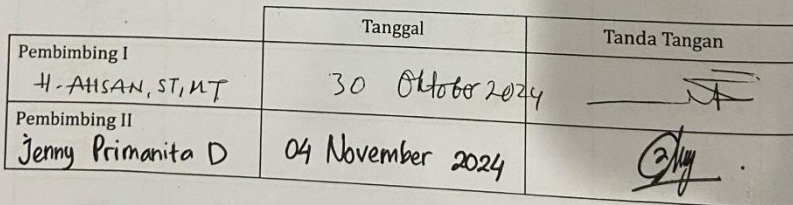 Tanggal
Tanda Tangan
Pembimbing I
H. AHSAN, ST, MT
30 Oktober 2024
Pembimbing II
Jenny Primanita D
04 November 2024